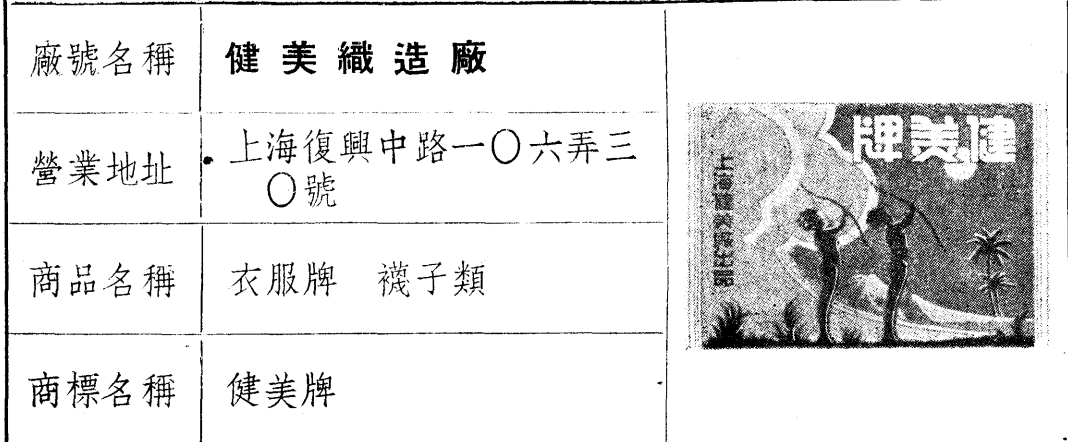 廠號名稱 健美織造廠
營業地址 上海復興中路一〇六弄三
〇號
商品名稱 衣服牌 襪子類
商標名稱 健美牌
健美牌